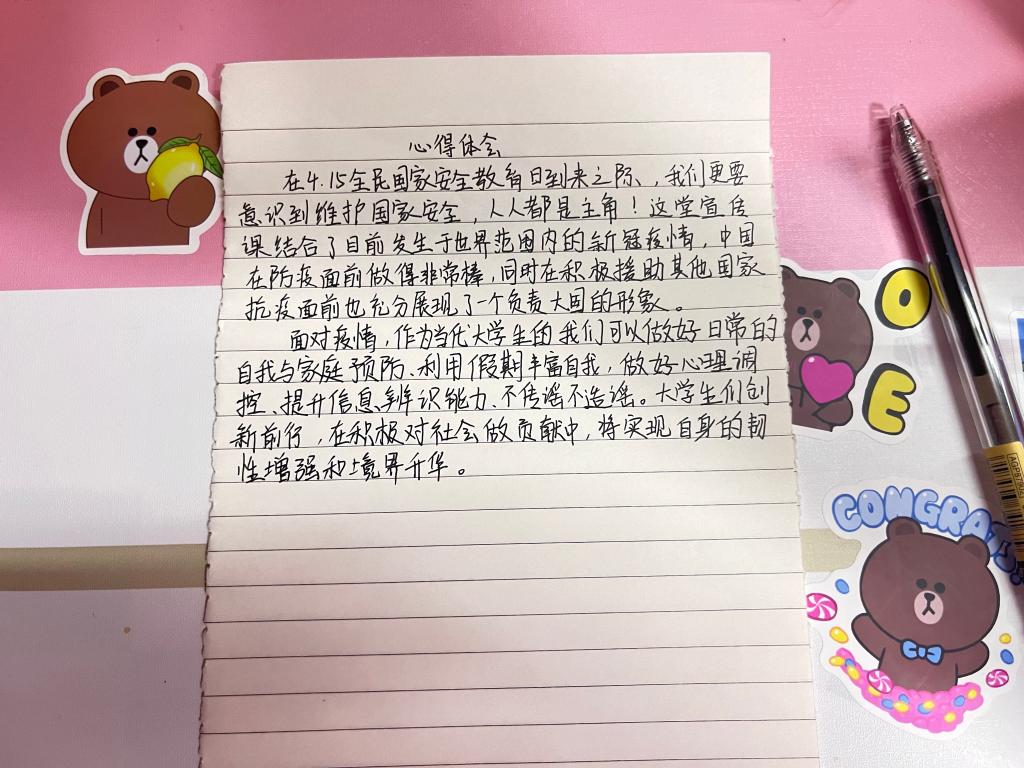 心得体会
在4.15全民国家安全教育日到来之际，我们更要
意识到维护国家安全，人人都是主角！这堂宣传
课结合了目前发生于世界范围内的新冠疫情，中国
在防疫面前做得非常棒，同时在积极援助其他国家
抗疫面前也充分展现了一个负责大国的形象。
面对疫情，作为当代大学生的我们可以做好日常的
自我与家庭预防、利用假期丰富自我，做好心理调
控、提升信息辨识能力、不传谣不造谣。大学生们创
新前行，在积极对社会做贡献中，将实现自身的韧
性增强和境界升华。
O
E
CONGRATS!